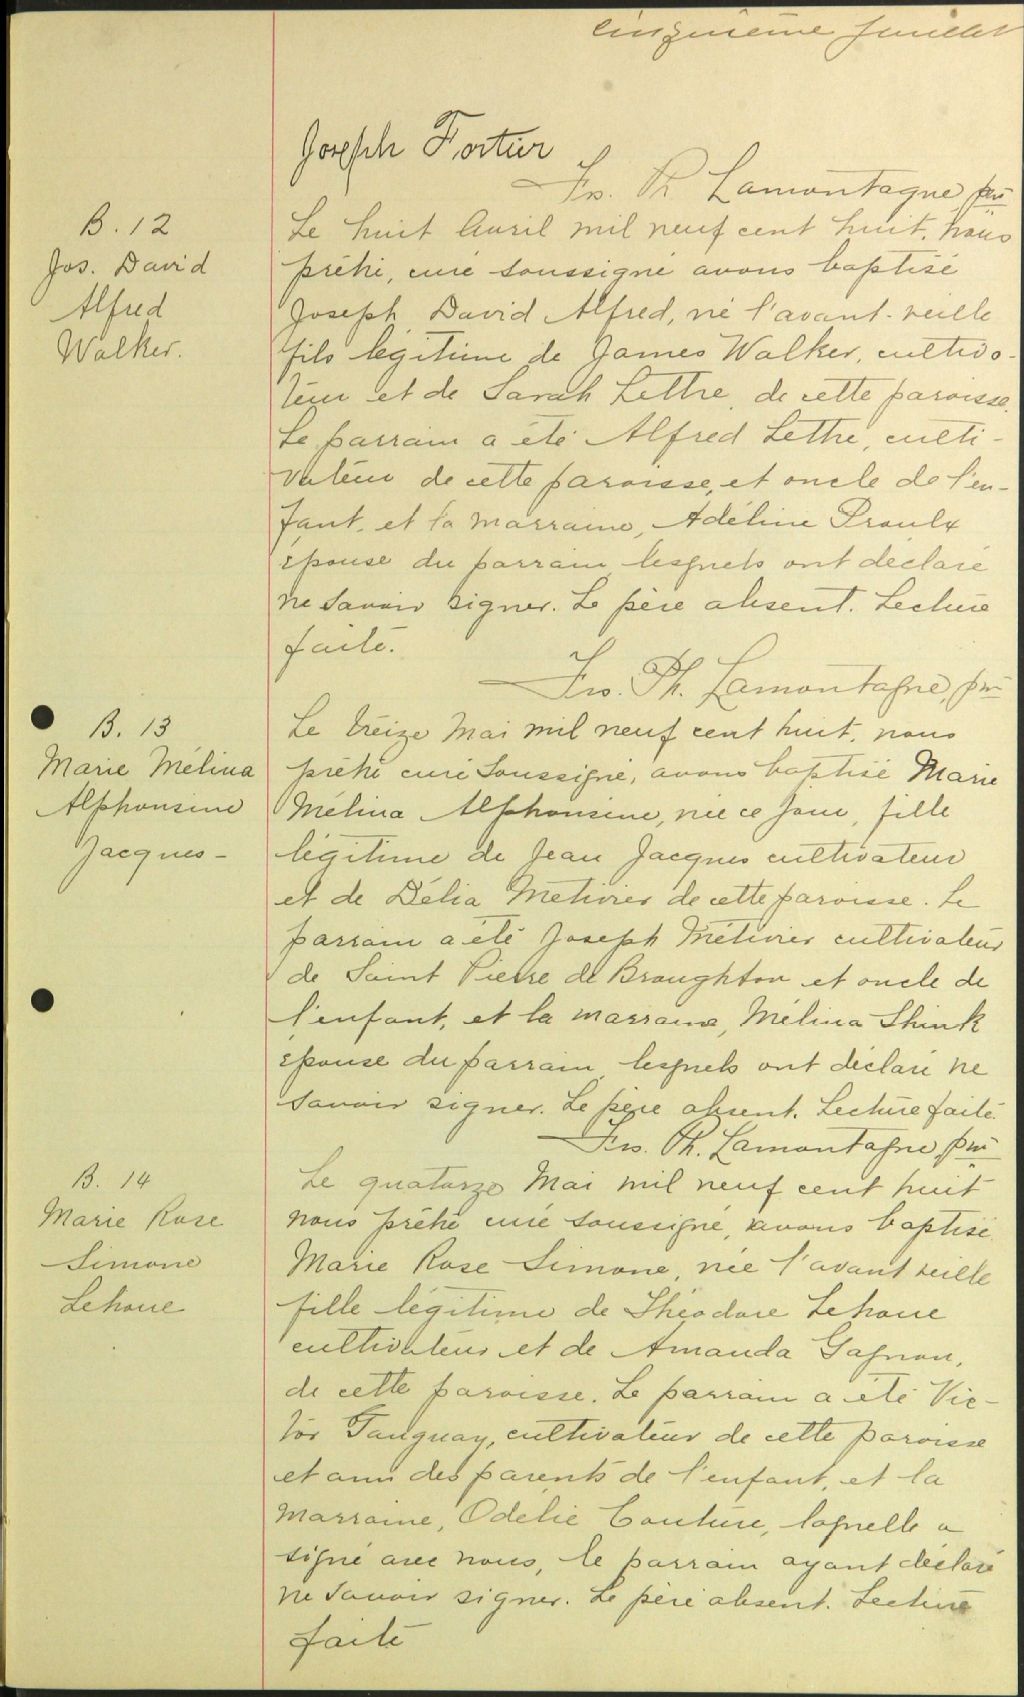 cinquième feuillet
Joseph Fortier
Frs. Ph Lamontagne, ptre
B. 12
Jos. David
Alfred
Walker.
Le huit Avril mil neuf cent huit, nous
prêtre, curé soussigné avons baptisé
Joseph David Alfred, né l'avant-veille
fils légitime de James Walker, cultiva-
teur et de Sarah Lettre, de cette paroisse.
Le parrain a été Alfred Lettre, culti-
vateur de cette paroisse, et oncle de l'en-
fant, et la marraine, Adéline Proulx
épouse du parrain, lesquels ont déclaré
ne savoir signer. Le père absent. Lecture
faite.
Frs. Ph. Lamontagne, ptre
B. 13
Marie Mélina
Alphonsine
Jacques-
Le treize Mai mil neuf cent huit, nous
prêtre curé soussigné, avons baptisé Marie
Mélina Alphonsine, née ce jour, fille
légitime de Jean Jacques cultivateur
et de Délia Métivier de cette paroisse. Le
parrain a été Joseph Métivier cultivateur
de Saint Pierre de Broughton et oncle de
l'enfant, et la marraine, Mélina Shink
épouse du parrain, lesquels ont déclaré ne
savoir signer. Le père absent. Lecture faite.
Frs. Ph. Lamontagne, ptre
B. 14
Marie Rose
Simone
Lehoue
Le quatorze Mai mil neuf cent huit
nous prêtre curé soussigné, avons baptisé
Marie Rose Simone, née l'avant veille
fille légitime de Théodore Lehoue
cultivateur et de Amanda Gagnon,
de cette paroisse. Le parrain a été Vic-
tor Tanguay, cultivateur de cette paroisse
et ami des parents de l'enfant, et la
marraine, Odélie Couture, laquelle a
signé avec nous, le parrain ayant déclaré
ne savoir signer. Le père absent. Lecture
faite